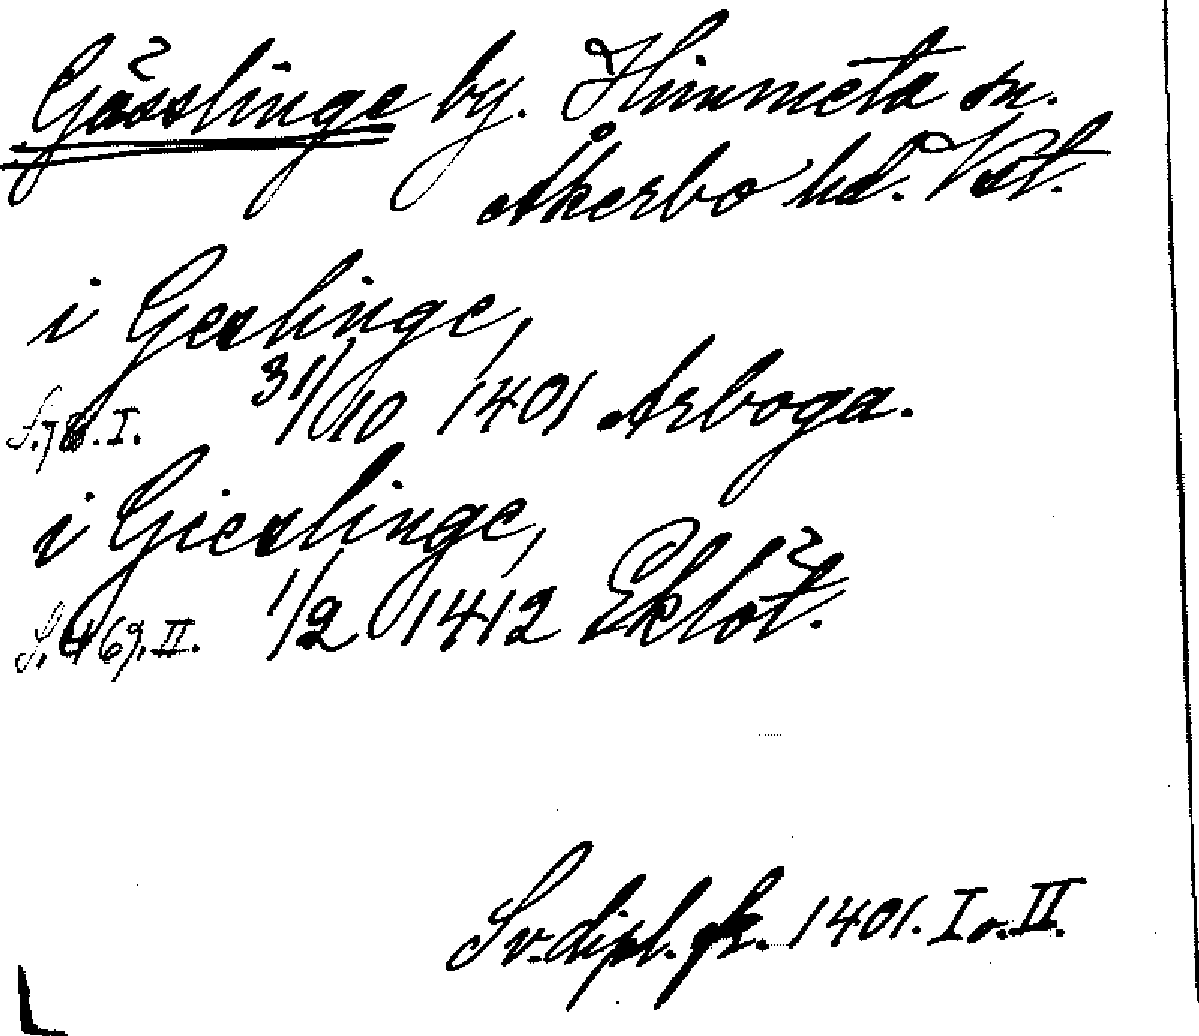 Gässlinge by. Himmeta sn.
Åkerbo hd. Vstl.
i Geslinge,
31/10 1401 Arboga.
S. 78. I.
i Gieslinge,
1/2 1412 Eklöt.
S. 469. II.
Sv. dipl. fr. 1401. I o. II.